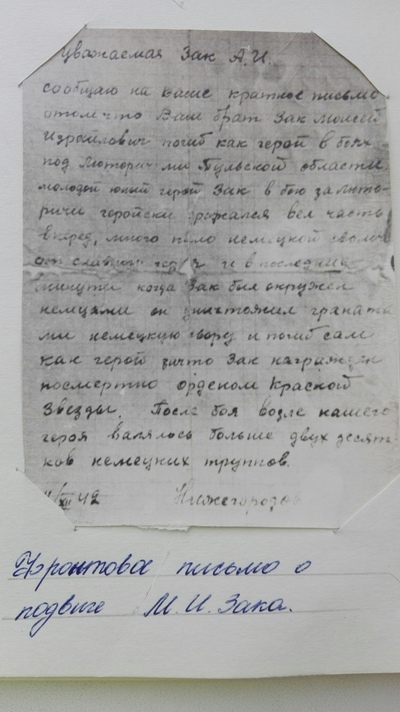 уважаемая Зак А.И.
сообщаю на ваше краткое письмо
о том что Ваш брат Зак Моисей
Израйлович погиб как герой в боях
под Люторичами Тульской области
молодой юный герой Зак в бою за Люто-
ричи геройски сражался вел часть
вперед, много пало немецкой сволочи
от славных и в последние
минуты когда Зак был окружен
немцами он уничтожил граната
ми немецкую свору и погиб сам
как герой зачто Зак награжден
посмертно орденом Красной
Звезды. После боя возле нашего
героя валялось больше двух десят-
ков немецких труппов.
/XII 42 Нижегородов
Фронтовое письмо о
подвиге М. И. Зака.